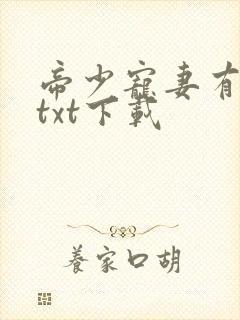 帝少寵妻有
txt下載
養家口胡